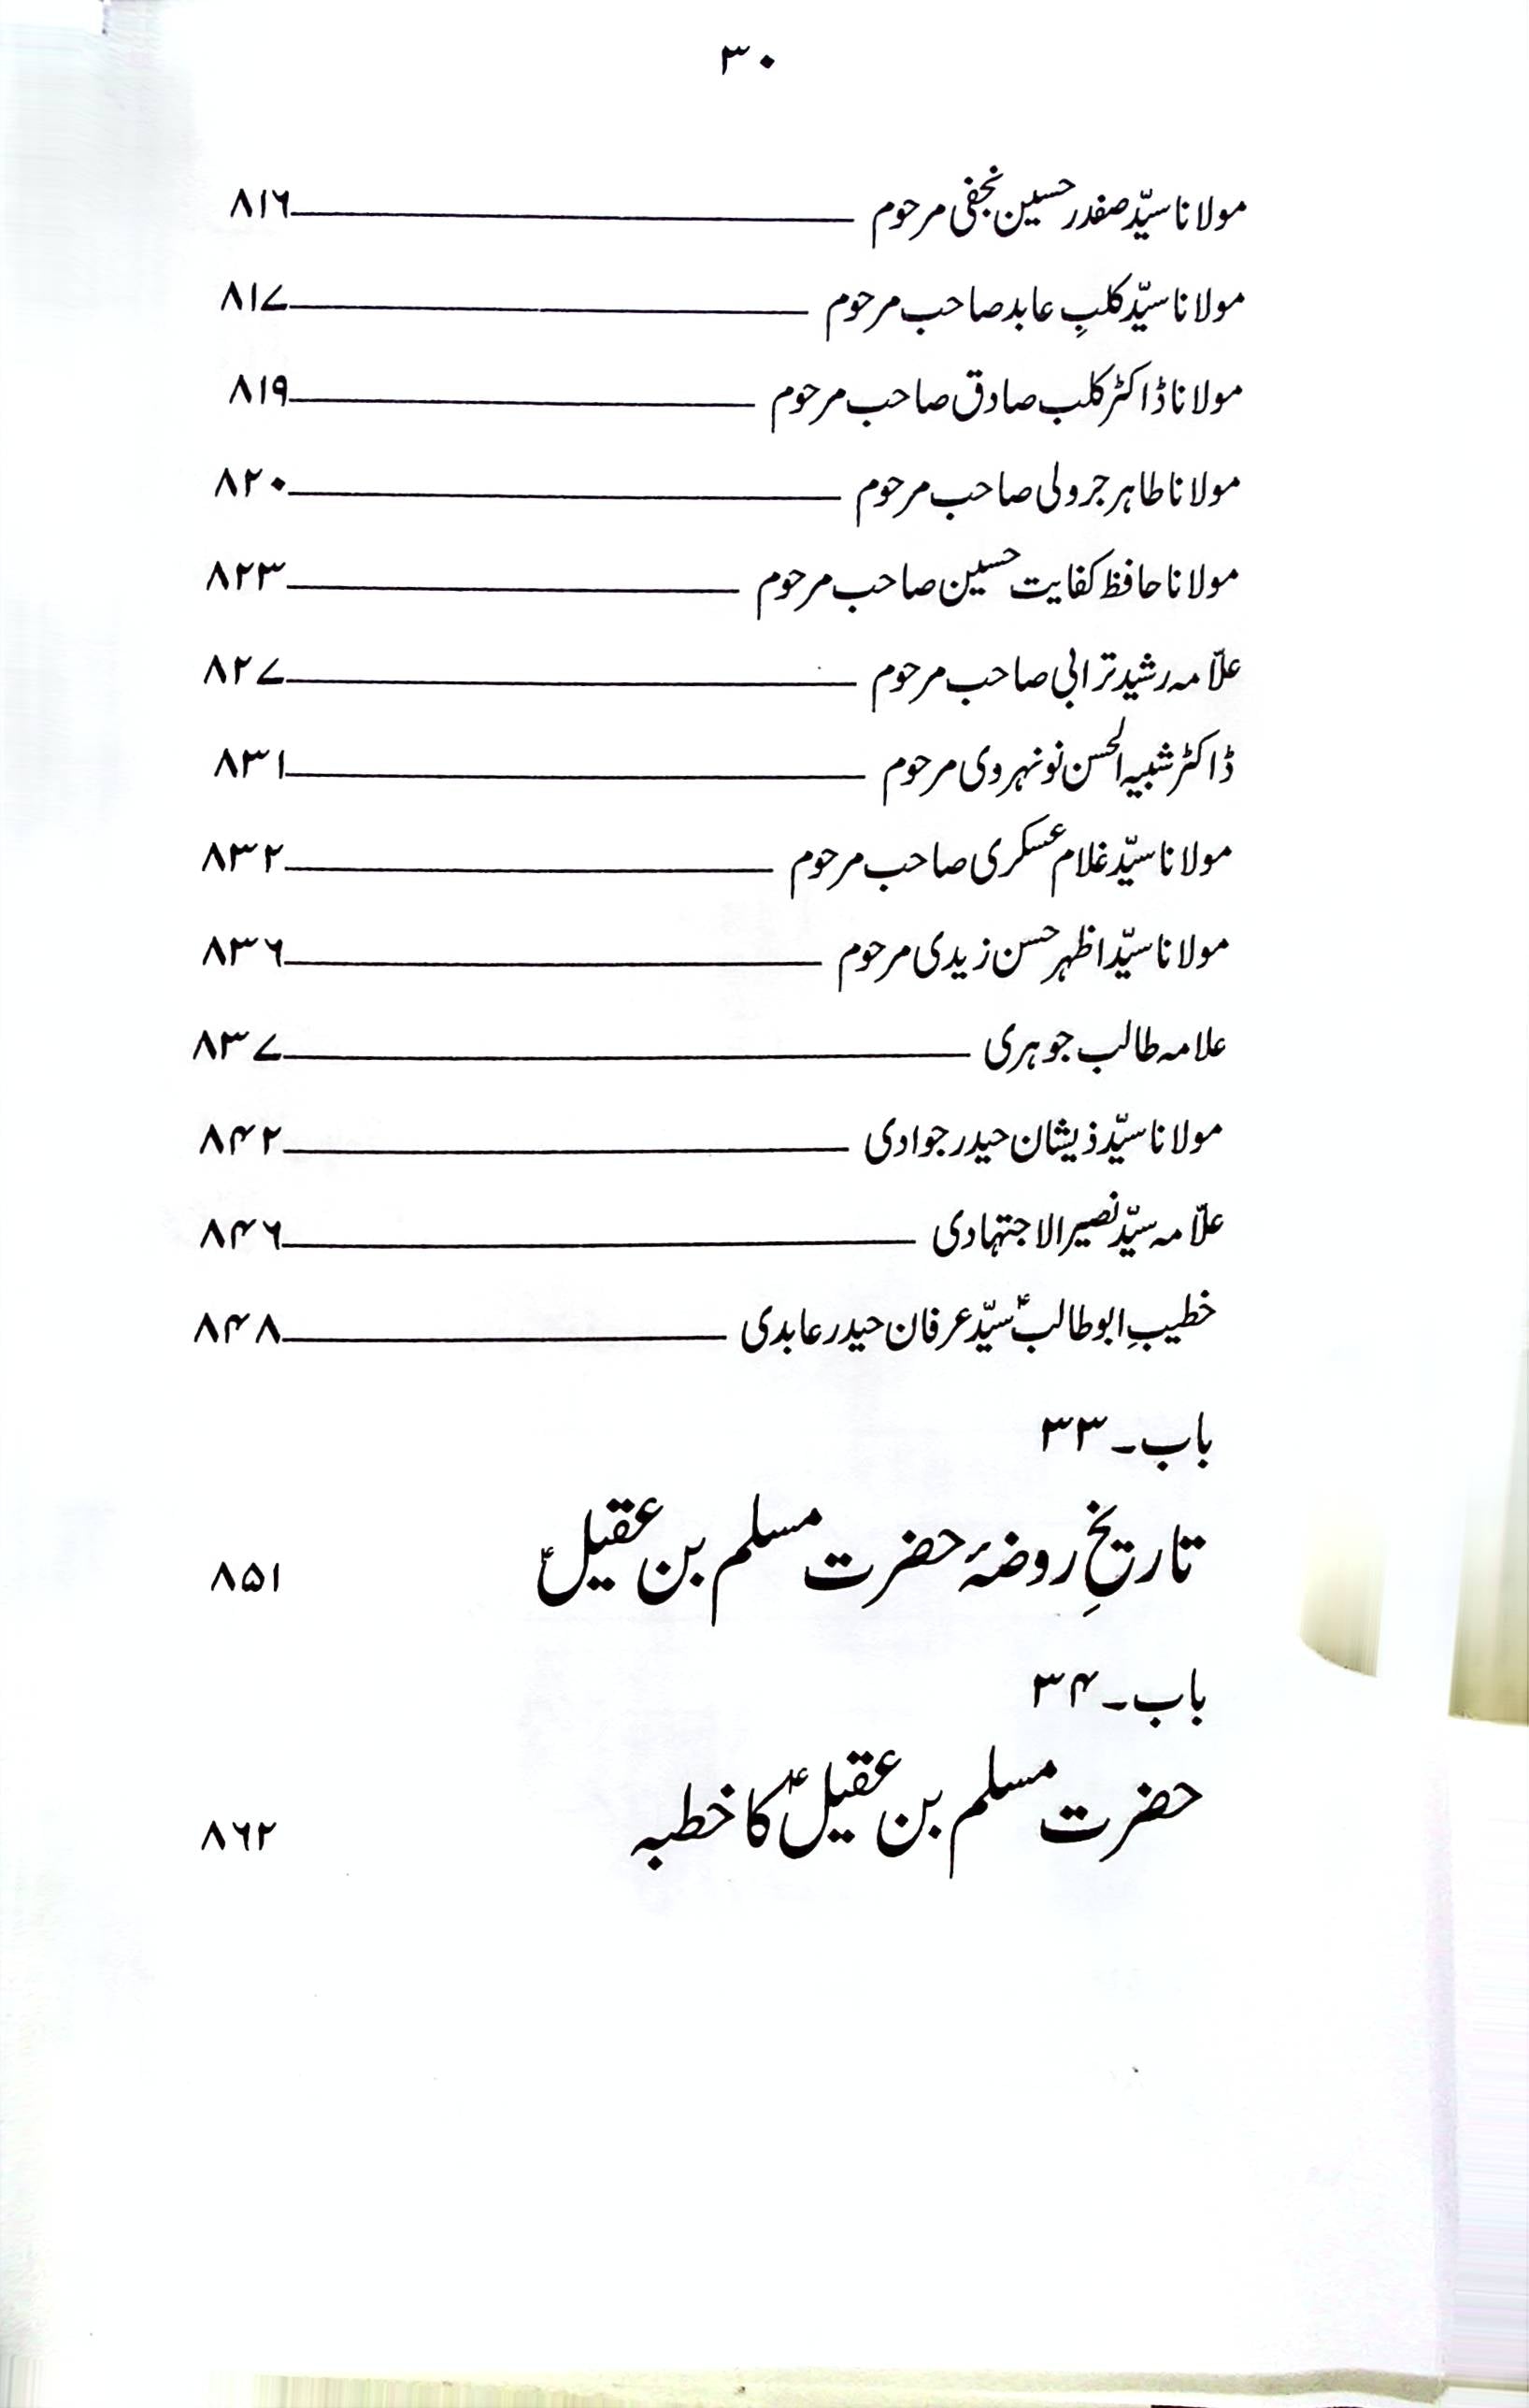 ۳۰
مولانا سیّد صفدر حسین نجفی مرحوم ۸۱۶
مولانا سیّد کلبِ عابد صاحب مرحوم ۸۱۷
مولانا ڈاکٹر کلب صادق صاحب مرحوم ۸۱۹
مولانا طاہر جرولی صاحب مرحوم ۸۲۰
مولانا حافظ کفایت حسین صاحب مرحوم ۸۲۳
علّامہ رشید ترابی صاحب مرحوم ۸۲۷
ڈاکٹر شبیہ الحسن نونہروی مرحوم ۸۳۱
مولانا سیّد غلام عسکری صاحب مرحوم ۸۳۲
مولانا سیّد اظہر حسن زیدی مرحوم ۸۳۶
علامہ طالب جوہری ۸۳۷
مولانا سیّد ذیشان حیدر جوادی ۸۴۲
علّامہ سیّد نصیر الاجتہادی ۸۴۶
خطیبِ ابو طالبؑ سیّد عرفان حیدر عابدی ۸۴۸
باب۔۳۳
تاریخِ روضۂ حضرت مسلم بن عقیلؑ ۸۵۱
باب۔۳۴
حضرت مسلم بن عقیلؑ کا خطبہ ۸۶۲